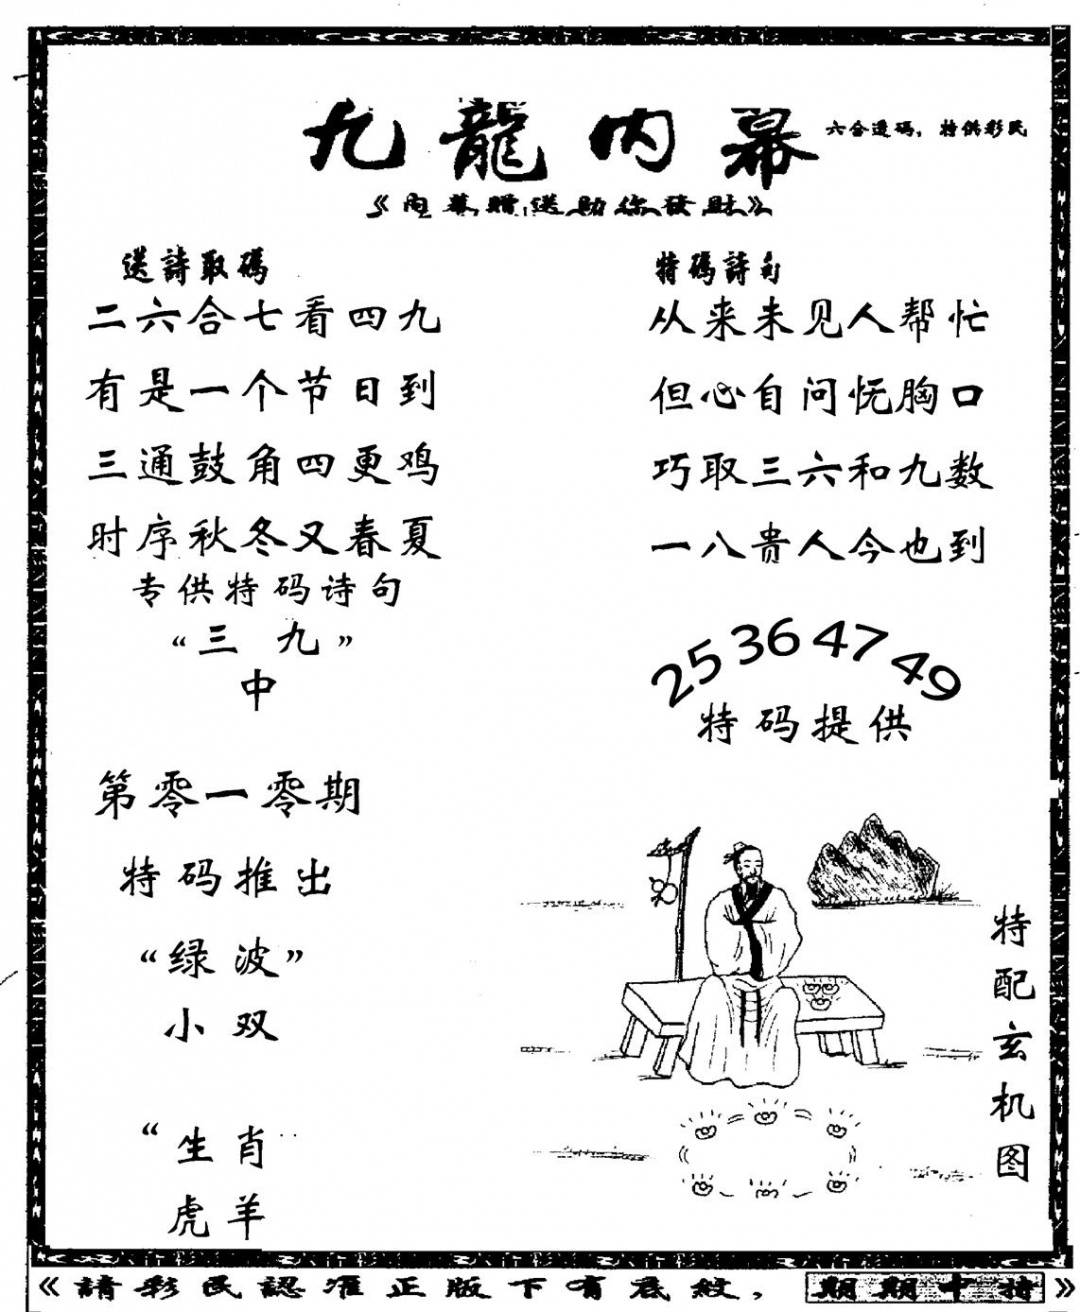 九龍内幕
六合透碼，特供彩民
《内幕贈送助你發財》
送詩取碼
二六合七看四九
有是一个节日到
三通鼓角四更鸡
时序秋冬又春夏
专供特码诗句
“三 九”
中
第零一零期
特码推出
“绿波”
小双
“生肖
虎羊
特碼詩句
从来未见人帮忙
但心自问怃胸口
巧取三六和九数
一八贵人今也到
25 36 47 49
特码提供
特配玄机图
《請彩民認准正版下有底紋，期期中特》